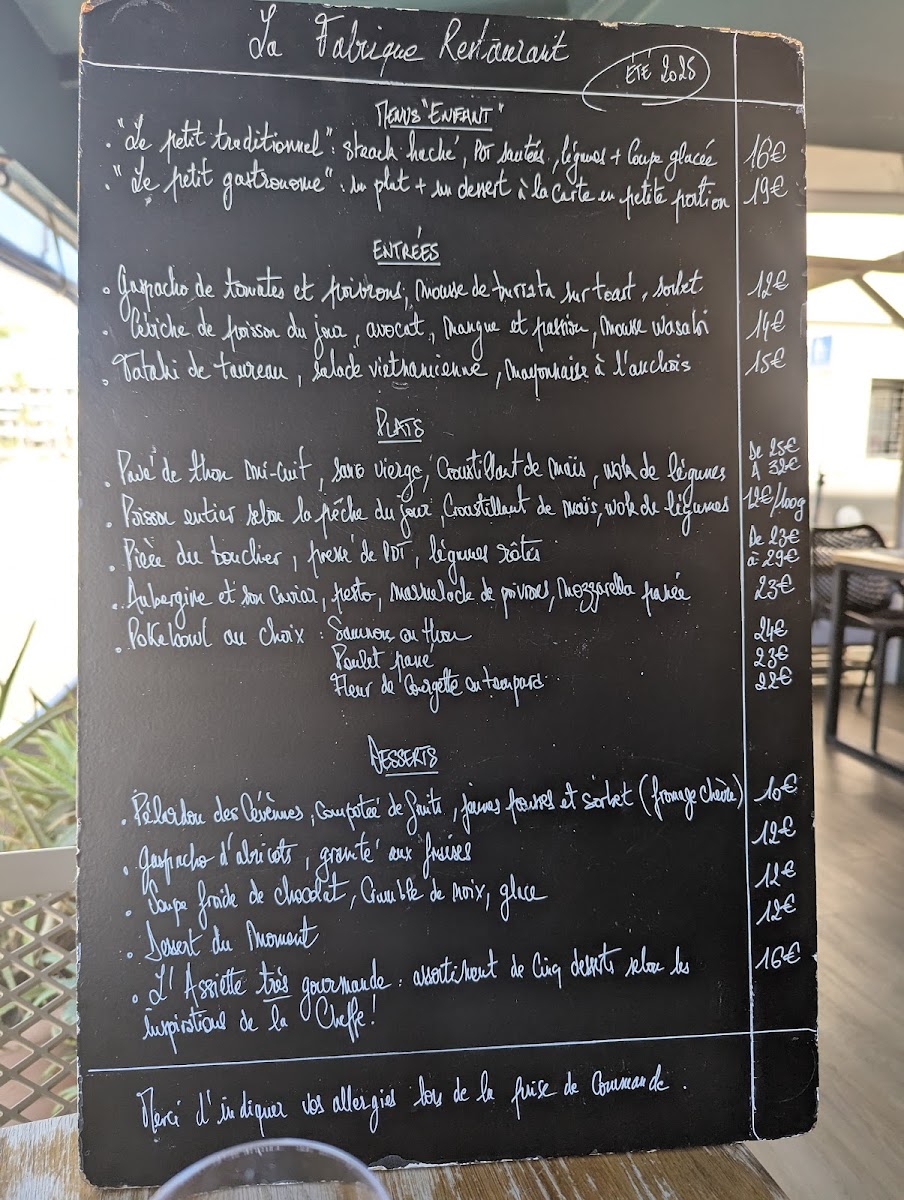 La Fabrique Restaurant
ÉTÉ 2025
MENUS "ENFANT"
. "Le petit traditionnel" : steack haché, PDT sautées, légumes + Coupe glacée 16€
. "Le petit gastronome" : un plat + un dessert à la carte en petite portion 19€
ENTRÉES
. Gaspacho de tomates et poivrons, mousse de burrata sur toast, sorbet 12€
. Cébiche de poisson du jour, avocat, mangue et passion, mousse wasabi 14€
. Tataki de taureau, salade vietnamienne, mayonnaise à l'anchois 15€
PLATS
. Pavé de thon mi-cuit, sauce vierge, Croustillant de maïs, wok de légumes De 25€ À 32€
. Poisson entier selon la pêche du jour, Croustillant de maïs, wok de légumes 12€/100g
. Pièce du boucher, pressé de PDT, légumes rôtis De 23€ à 29€
. Aubergine et son caviar, pesto, marmelade de poivrons, mozzarella panée 23€
. Pokebowl au choix : Saumon ou thon 24€
Poulet pané 23€
Fleur de Courgette en tempura 22€
DESSERTS
. Pélardon des Cévennes, compotée de fruits, jeunes pousses et sorbet (fromage chèvre) 10€
. Gaspacho d'abricots, granité aux fraises 12€
. Soupe froide de chocolat, Crumble de noix, glace 12€
. Dessert du Moment 12€
. L'Assiette très gourmande : assortiment de Cinq desserts selon les 16€
inspirations de la Cheffe!
Merci d'indiquer vos allergies lors de la prise de Commande.